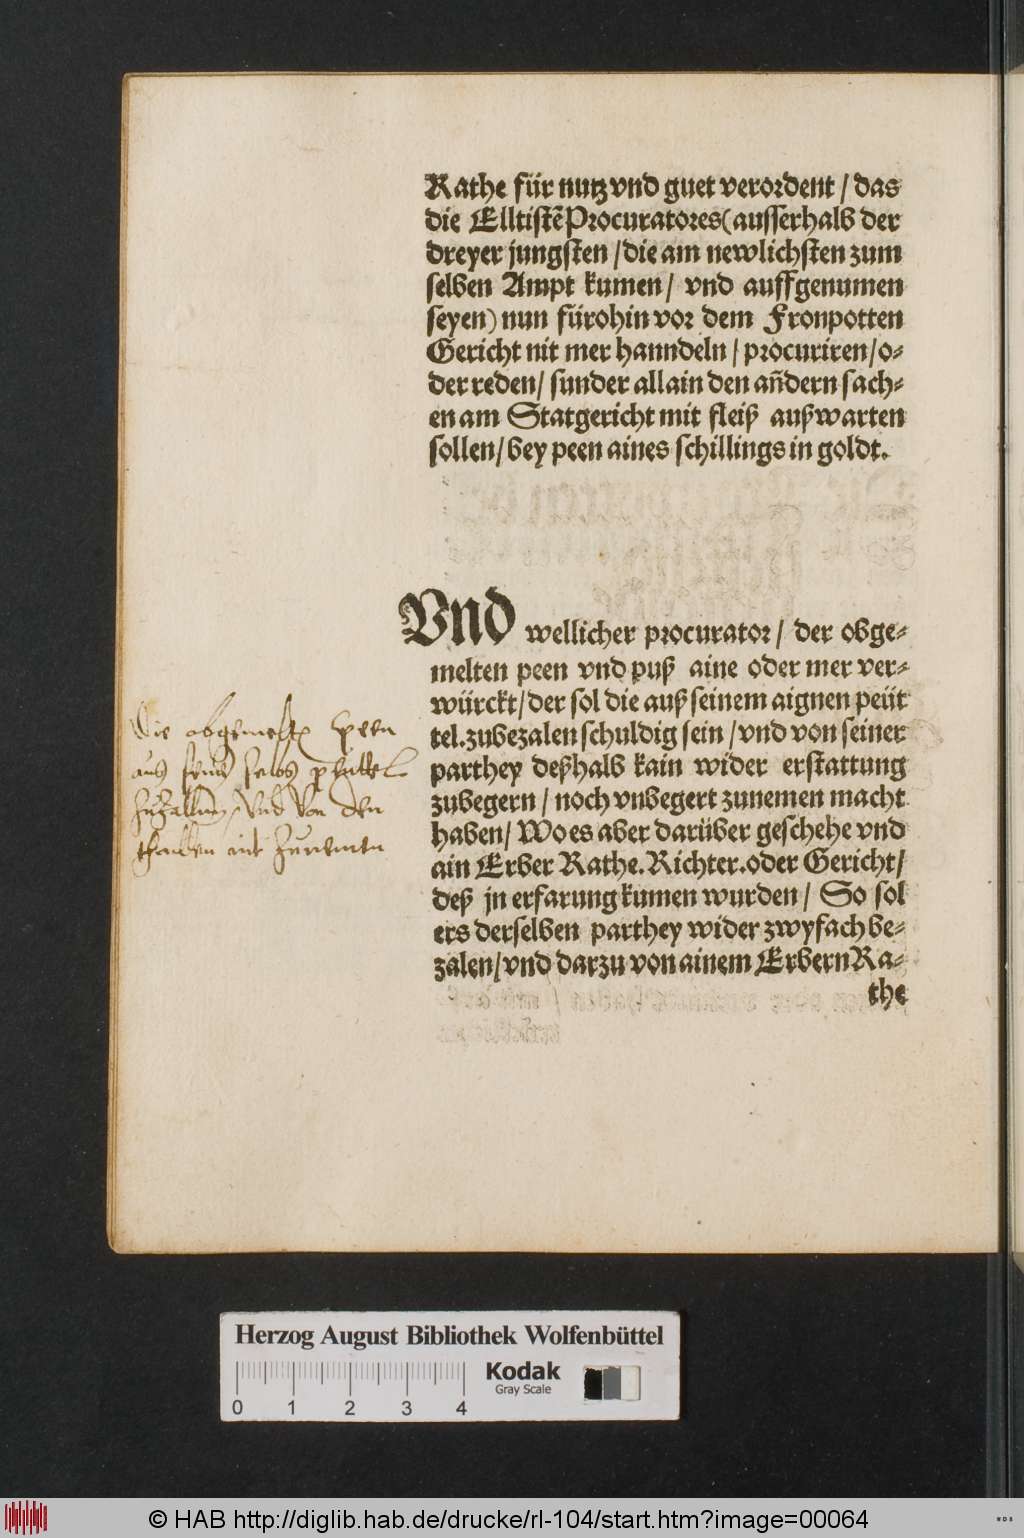 Rathe für nutz vnd guet verordent / das
die Elltistẽ Procuratores (ausserhalb der
dreyer jungsten / die am newlichsten zum
selben Ampt kumen / vnd auffgenumen
seyen) nun fürohin vor dem Fronpotten
Gericht nit mer hanndeln / procuriren / o-
der reden / sunder allain den añdern sach-
en am Statgericht mit fleiß außwarten
sollen / bey peen aines schillings in goldt.
Vnd wellicher procurator / der obge-
melten peen vnd puß aine oder mer ver-
würckt / der sol die auß seinem aignen peüt
tel. zubezalen schuldig sein / vnd von seiner
parthey deßhalb kain wider erstattung
zubegern / noch vnbegert zunemen macht
haben / Wo es aber darüber geschehe vnd
ain Erber Rathe. Richter. oder Gericht /
deß jn erfarung kumen wurden / So sol
ers derselben parthey wider zwyfach be-
zalen / vnd darzu von ainem Erbern Ra-
the
Die obgemelt peen
aus seins selbs
vnd von den
nit zunemen
Herzog August Bibliothek Wolfenbüttel
Kodak
Gray Scale
0 1 2 3 4
© HAB http://diglib.hab.de/drucke/rl-104/start.htm?image=00064